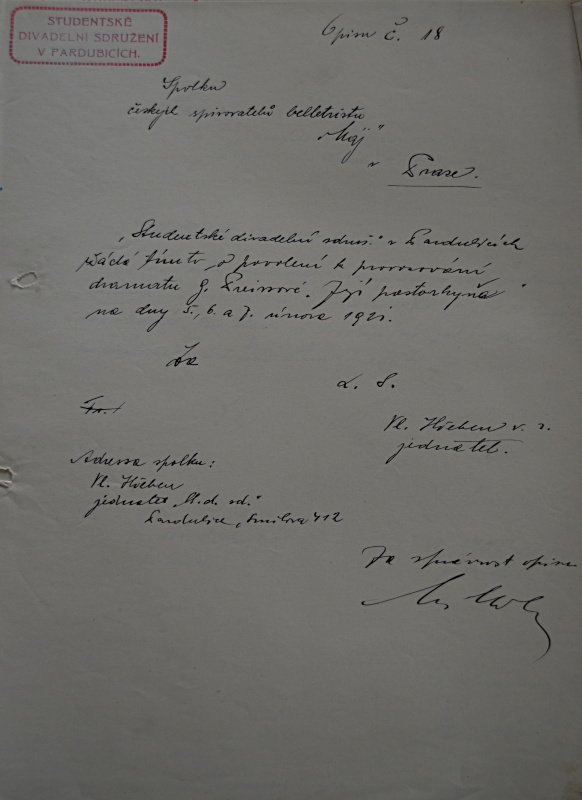 STUDENTSKÉ
DIVADELNÍ SDRUŽENÍ
V PARDUBICÍCH.
Opisu Č. 18
Spolku
českých spisovatelů belletristů
„Máj"
v
Praze.
„Studentské divadelní sdruž." v Pardubicích
žádá tímto o povolení k provozování
dramatu G. Preissové „Její pastorkyňa"
na dny 5., 6. a 7. února 1921.
Za
L. S.
Vl. Hřeben v. r.
jednatel.
Adressa spolku:
Vl. Hřeben
jednatel „St. d. sd."
Pardubice, Smilova 412
Za správnost opisu